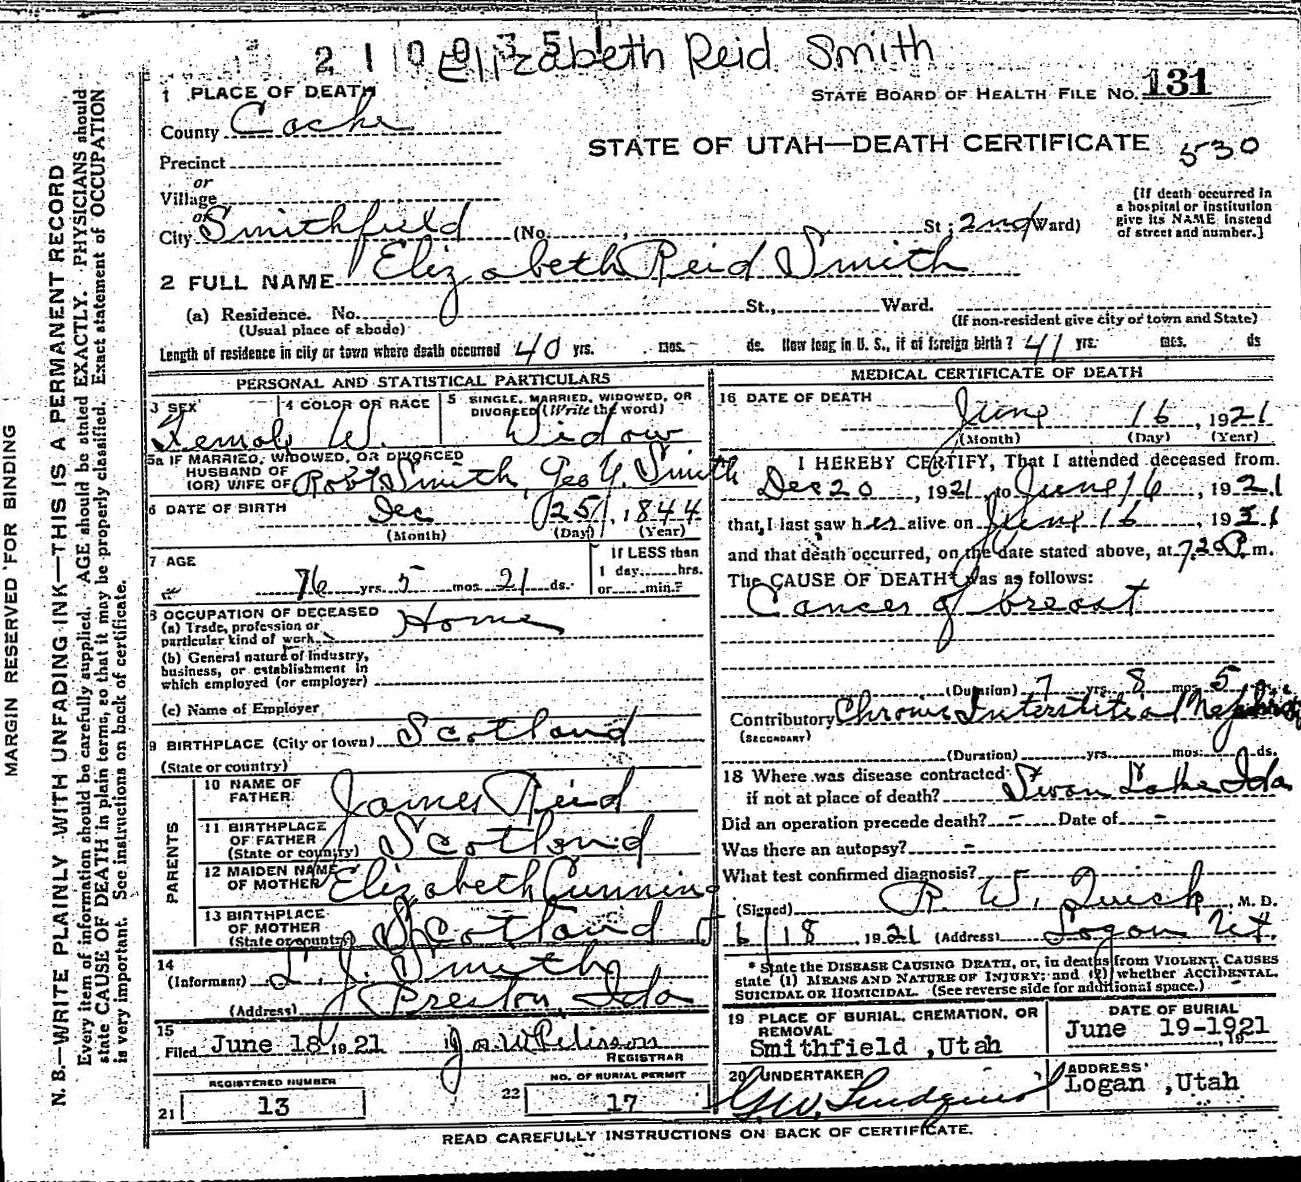 2 1 0 0 3 5 1
Elizabeth Reid Smith
1 PLACE OF DEATH
STATE BOARD OF HEALTH FILE NO. 131
County Cache
STATE OF UTAH—DEATH CERTIFICATE 530
Precinct
or
Village
or
City Smithfield (No. , St; 2nd Ward)
[If death occurred in
a hospital or institution
give its NAME instead
of street and number.]
2 FULL NAME Elizabeth Reid Smith
(a) Residence. No. St., Ward.
(Usual place of abode) (If non-resident give city or town and State)
Length of residence in city or town where death occurred 40 yrs. mos. ds. How long in U. S., if of foreign birth? 41 yrs. mos. ds
PERSONAL AND STATISTICAL PARTICULARS
3 SEX
Female
4 COLOR OR RACE
W.
5 SINGLE, MARRIED, WIDOWED, OR
DIVORCED (Write the word)
Widow
5a IF MARRIED, WIDOWED, OR DIVORCED
HUSBAND OF
(OR) WIFE OF Robt Smith, Geo Y. Smith
6 DATE OF BIRTH Dec 25, 1844
(Month) (Day) (Year)
7 AGE
76 yrs. 5 mos. 21 ds.
If LESS than
1 day, hrs.
or min.?
8 OCCUPATION OF DECEASED
(a) Trade, profession or
particular kind of work Home
(b) General nature of industry,
business, or establishment in
which employed (or employer)
(c) Name of Employer
9 BIRTHPLACE (City or town) Scotland
(State or country)
PARENTS
10 NAME OF
FATHER James Reid
11 BIRTHPLACE
OF FATHER
(State or country) Scotland
12 MAIDEN NAME
OF MOTHER Elizabeth Cunning
13 BIRTHPLACE
OF MOTHER
(State or country) Scotland
14
(Informant) L. J. Smith
(Address) Preston Ida
15
Filed June 18, 1921
REGISTRAR
REGISTERED NUMBER
21 13
NO. OF BURIAL PERMIT
22 17
MEDICAL CERTIFICATE OF DEATH
16 DATE OF DEATH
June 16, 1921
(Month) (Day) (Year)
I HEREBY CERTIFY, That I attended deceased from.
Dec 20, 1921, to June 16, 1921
that I last saw her alive on June 16, 1921
and that death occurred, on the date stated above, at 7.20 P. m.
The CAUSE OF DEATH* was as follows:
Cancer of breast
(Duration) 7 yrs. 8 mos. 5 ds.
Contributory Chronic Interstitial Nephritis
(SECONDARY)
(Duration) yrs. mos. ds.
18 Where was disease contracted
if not at place of death? Swan Lake Ida
Did an operation precede death? - Date of -
Was there an autopsy? -
What test confirmed diagnosis?
(Signed) R. W. Quick, M. D.
6/18, 1921 (Address) Logan Ut.
* State the DISEASE CAUSING DEATH, or, in deaths from VIOLENT CAUSES
state (1) MEANS AND NATURE OF INJURY; and (2) whether ACCIDENTAL,
SUICIDAL OR HOMICIDAL. (See reverse side for additional space.)
19 PLACE OF BURIAL, CREMATION, OR
REMOVAL
Smithfield ,Utah
DATE OF BURIAL
June 19-1921, 19
20 UNDERTAKER
G.W. Lindquist
ADDRESS
Logan ,Utah
READ CAREFULLY INSTRUCTIONS ON BACK OF CERTIFICATE.
MARGIN RESERVED FOR BINDING
N. B.—WRITE PLAINLY WITH UNFADING INK—THIS IS A PERMANENT RECORD
Every item of information should be carefully supplied. AGE should be stated EXACTLY. PHYSICIANS should
state CAUSE OF DEATH in plain terms, so that it may be properly classified. Exact statement of OCCUPATION
is very important. See instructions on back of certificate.